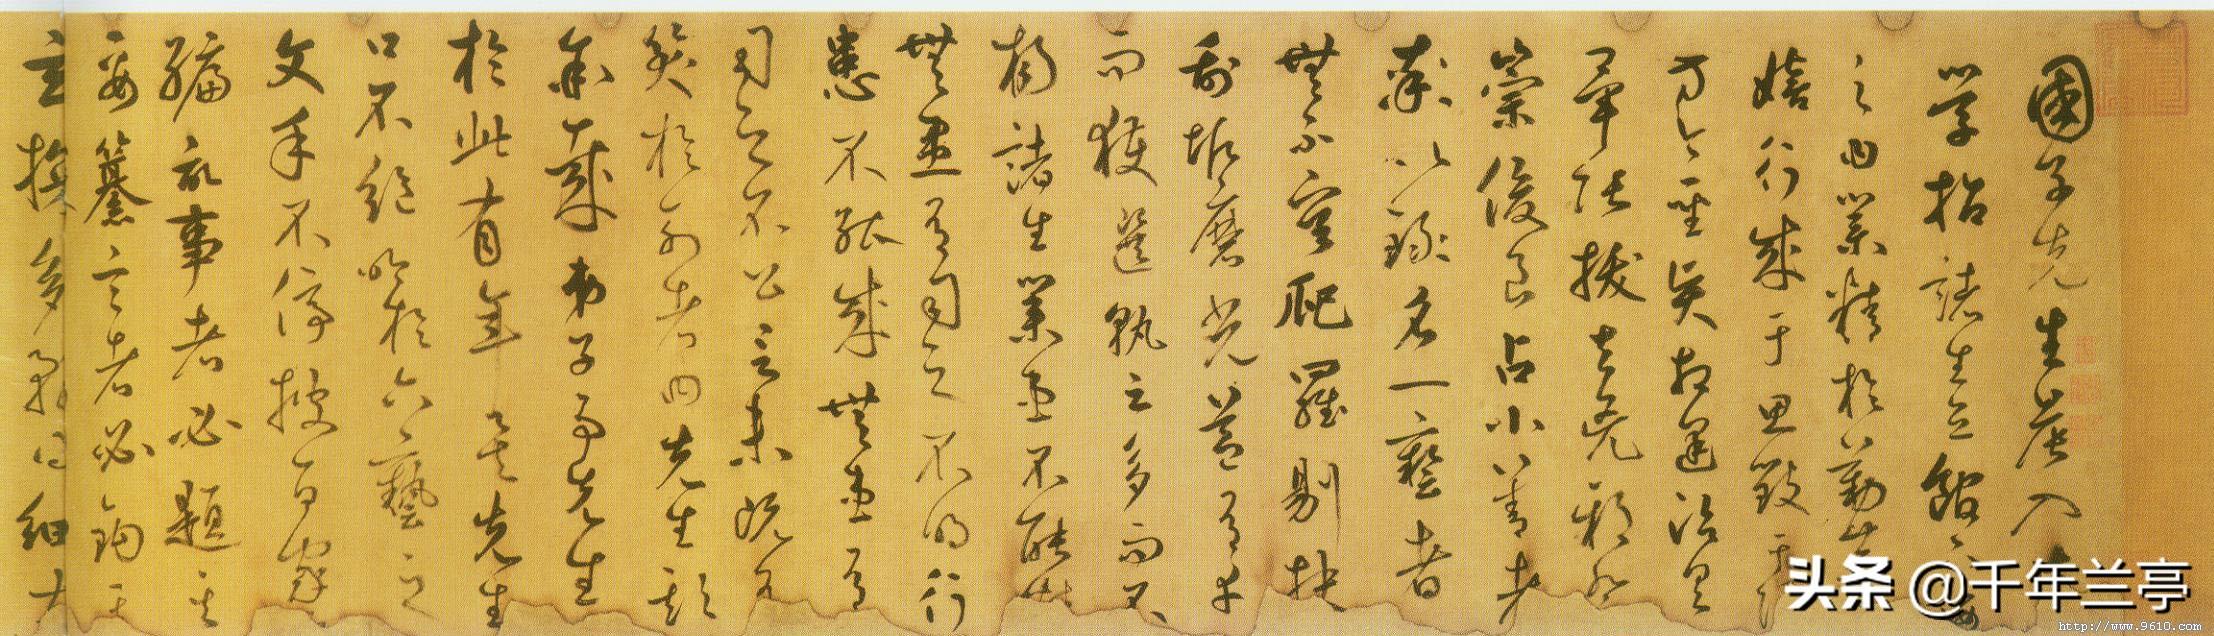 國子先生晨入
學招諸生立館下誨
之曰業精於勤荒
嬉行成于思毀于
方今聖賢相逢治具
畢張拔去兇邪登
崇俊良占小善者
率以錄名一藝者
無不庸爬羅剔抉
刮垢磨光蓋有幸
而獲選孰云多而不
揚諸生業患不能精
無患有司之不明行
患不能成無患有
司之不公言未既有
笑於列者曰先生欺
余哉弟子事先生
於此有年矣先生
口不絕吟於六藝之
文手不停披百家
編記事者必題其
要纂言者必鉤其
玄多務得細大
头条 @千年兰亭
http://www.9610.com